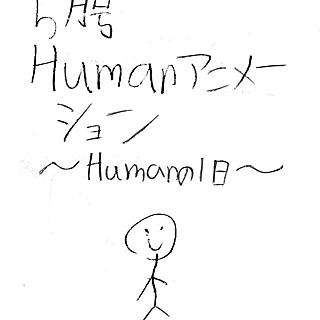 5月号
Humanアニメー
ション
～Humanの1日～